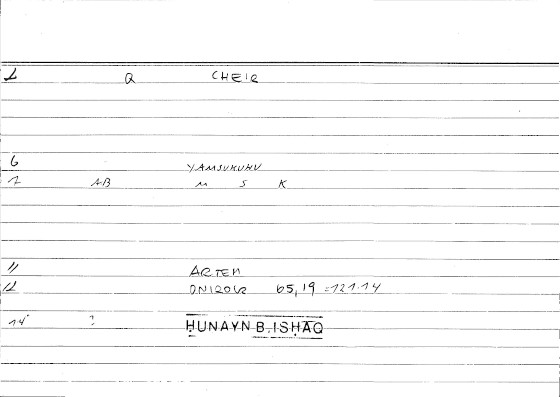 1 Q CHEIR
6 YAMSUKUHU
7 AB M S K
11 ARTEM
12 ONIROKR 65,19 =121.14
14 ? ḤUNAYN B. ISḤĀQ